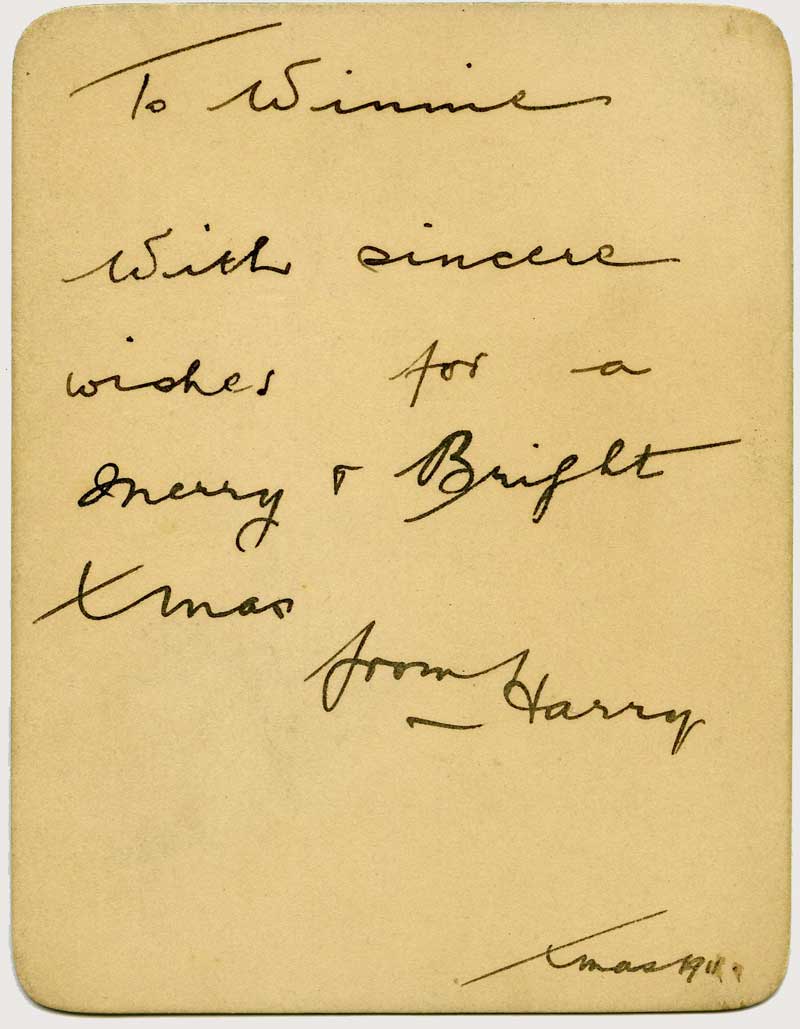 To Winnie
With sincere
wishes for a
merry & Bright
Xmas
from Harry
Xmas 1911.